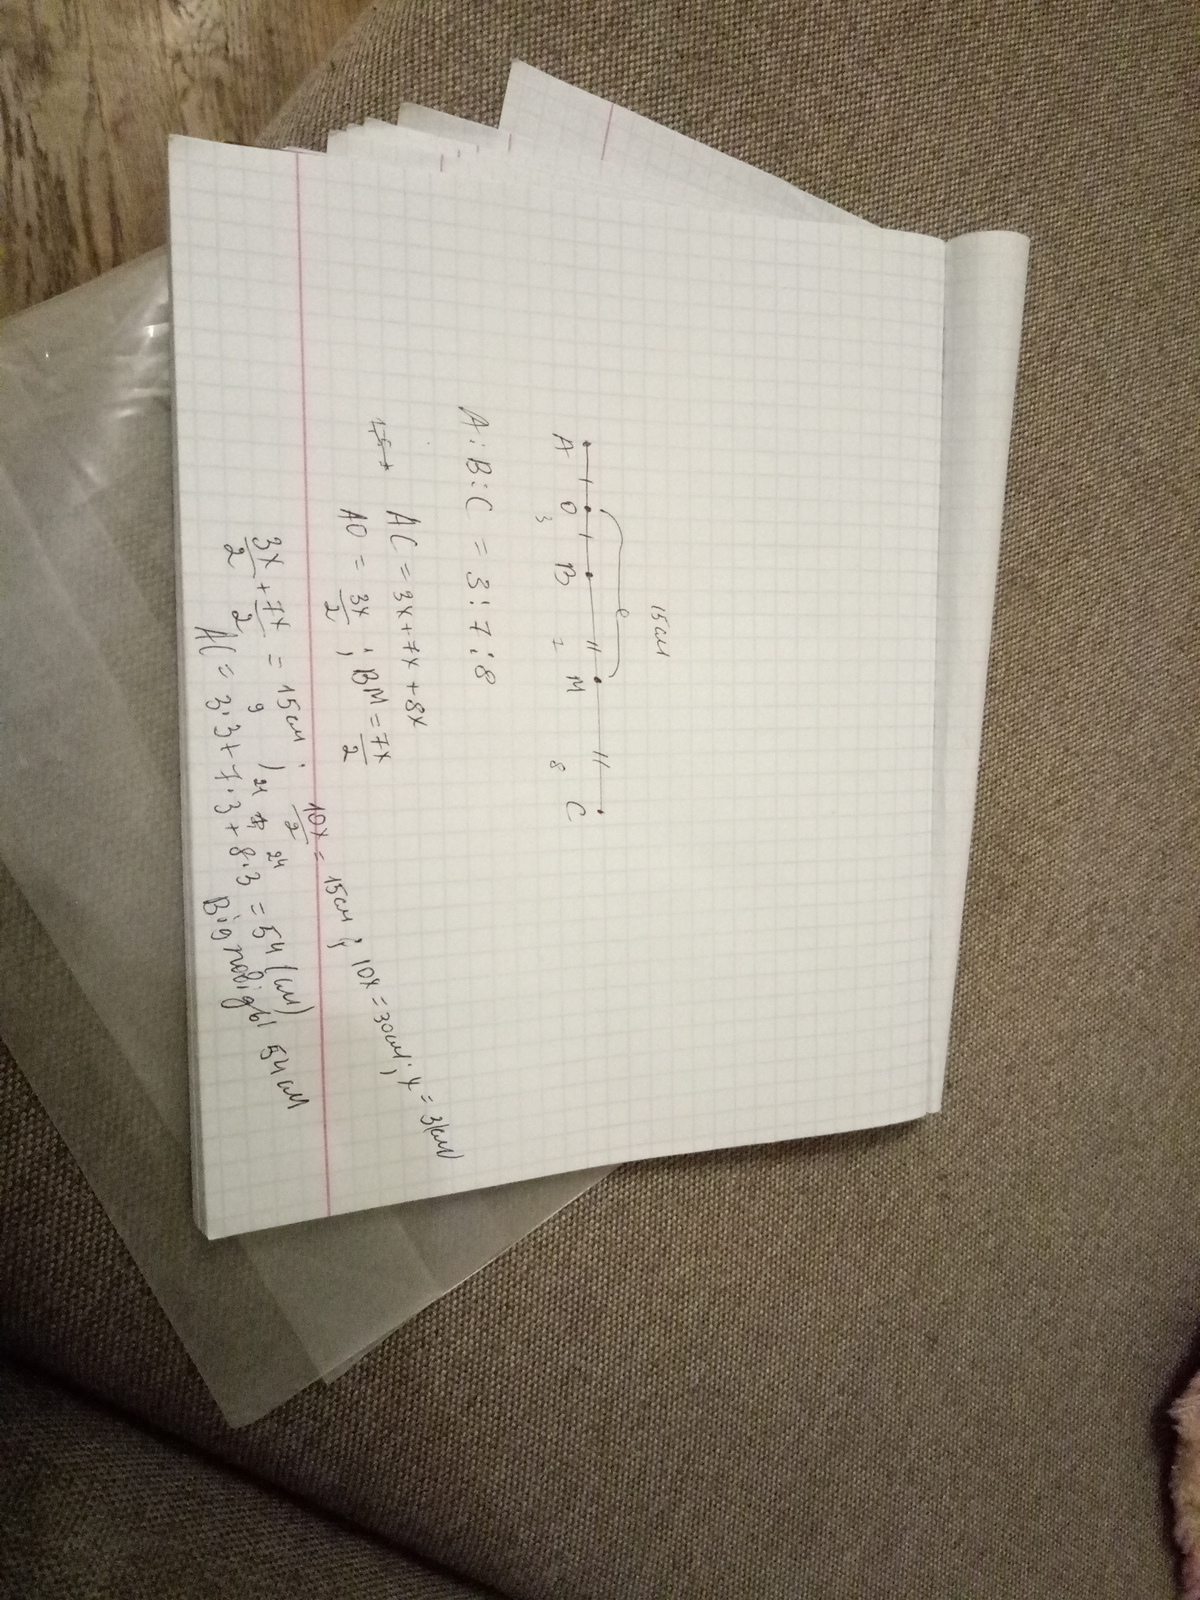 15см
A O B M C
3 2 8
A:B:C = 3:7:8
AC = 3x+7x+8x
AO = 3x/2 ; BM = 7x/2
3x/2 + 7x/2 = 15см ; 10x/2 = 15см ; 10x = 30см ; x = 3(см)
9 21 24
AC = 3·3+7·3+8·3 = 54 (см)
Відповідь 54 см